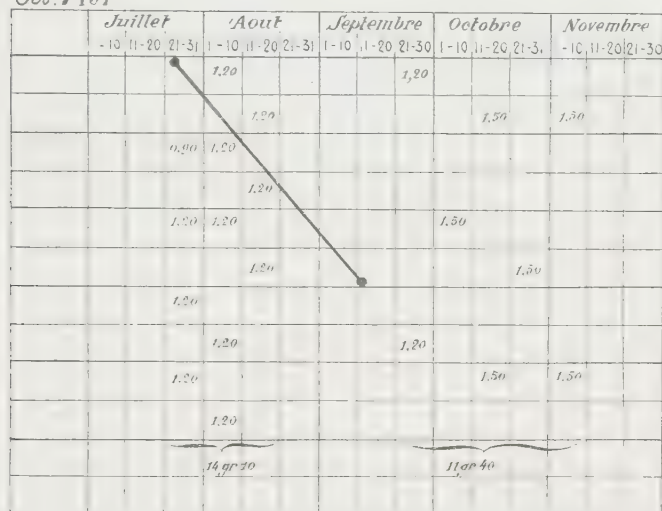 Juillet Aout Septembre Octobre Novembre
-10 11-20 21-31 1-10 11-20 21-31 1-10 11-20 21-30 1-10 11-20 21-3 -10 11-20 21-30
1,20 1,20
1,20 1,50 1,50
0,90 1,20
1,20
1,20 1,20 1,50
1,20 1,50
1,20
1,20 1,20
1,20 1,50 1,50
1,20
11gr 40